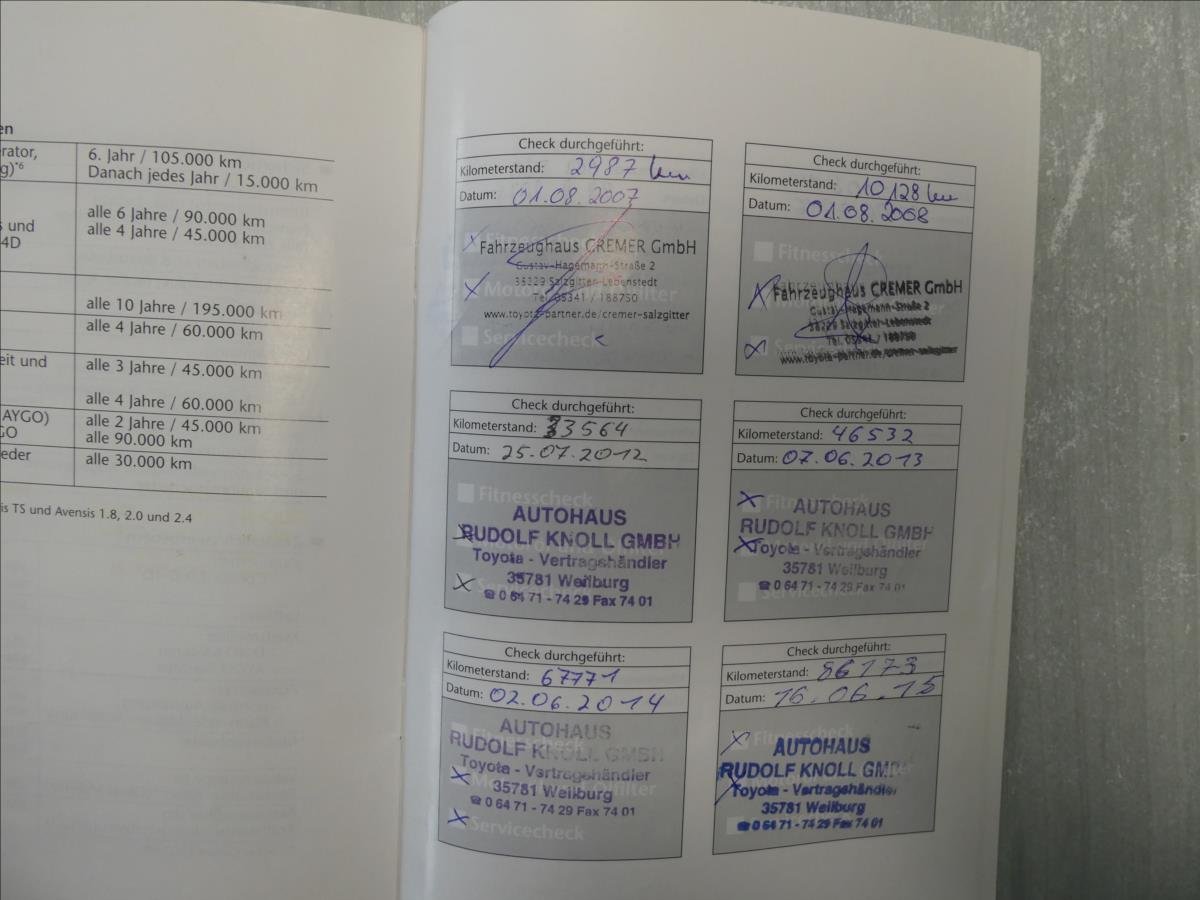 en
rator,
g)*6
6. Jahr / 105.000 km
Danach jedes Jahr / 15.000 km
s und
4D
alle 6 Jahre / 90.000 km
alle 4 Jahre / 45.000 km
alle 10 Jahre / 195.000 km
alle 4 Jahre / 60.000 km
eit und
alle 3 Jahre / 45.000 km
alle 4 Jahre / 60.000 km
AYGO)
GO
alle 2 Jahre / 45.000 km
alle 90.000 km
eder
alle 30.000 km
is TS und Avensis 1.8, 2.0 und 2.4
Check durchgeführt:
Kilometerstand: 2987 km
Datum: 01.08.2007
Fahrzeughaus CREMER GmbH
Gustav-Hagemann-Straße 2
38229 Salzgitter-Lebenstedt
Tel. 05341 / 188750
www.toyota-partner.de/cremer-salzgitter
Servicecheck
Check durchgeführt:
Kilometerstand: 10128 km
Datum: 01.08.2008
Fitnesscheck
Fahrzeughaus CREMER GmbH
Gustav-Hagemann-Straße 2
38229 Salzgitter-Lebenstedt
Tel. 05341 / 188750
www.toyota-partner.de/cremer-salzgitter
Check durchgeführt:
Kilometerstand: 33564
Datum: 25.07.2012
Fitnesscheck
AUTOHAUS
RUDOLF KNOLL GMBH
Toyota - Vertragshändler
35781 Weilburg
☎ 0 64 71 - 74 29 Fax 74 01
Check durchgeführt:
Kilometerstand: 46532
Datum: 07.06.2013
Fitnesscheck
AUTOHAUS
RUDOLF KNOLL GMBH
Toyota - Vertragshändler
35781 Weilburg
☎ 0 64 71 - 74 29 Fax 74 01
Servicecheck
Check durchgeführt:
Kilometerstand: 67771
Datum: 02.06.2014
Fitnesscheck
AUTOHAUS
RUDOLF KNOLL GMBH
Toyota - Vertragshändler
35781 Weilburg
☎ 0 64 71 - 74 29 Fax 74 01
Servicecheck
Check durchgeführt:
Kilometerstand: 86173
Datum: 16.06.15
AUTOHAUS
RUDOLF KNOLL GMB
Toyota - Vertragshändler
35781 Weilburg
☎ 0 64 71 - 74 29 Fax 74 01